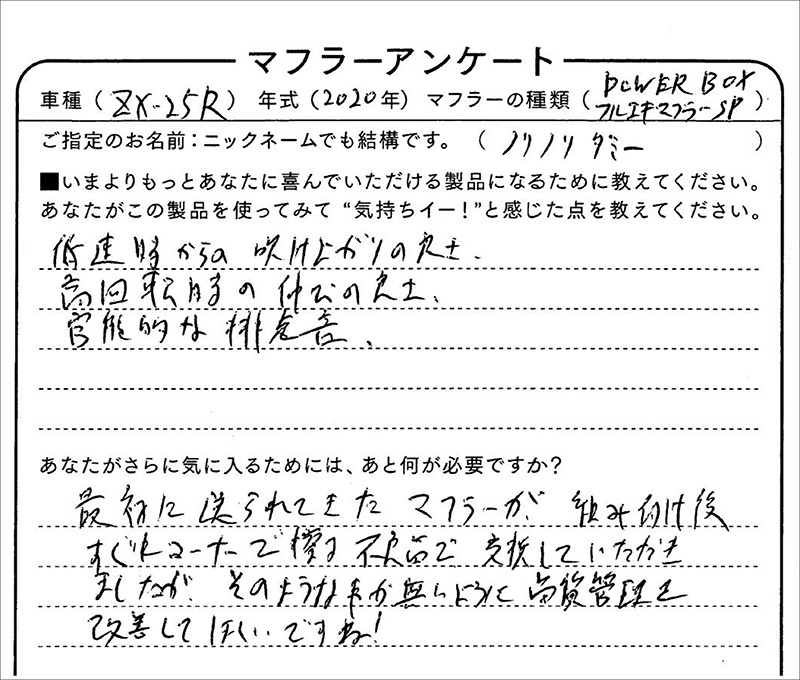 マフラーアンケート
車種（ZX-25R）年式（2020年）マフラーの種類（POWER BOX フルエキマフラーSP）
ご指定のお名前：ニックネームでも結構です。（ノリノリダミー）
■いまよりもっとあなたに喜んでいただける製品になるために教えてください。
あなたがこの製品を使ってみて“気持ちイー！”と感じた点を教えてください。
低速時からの吹け上がりの良さ、
高回転時の伸びの良さ、
官能的な排気音、
あなたがさらに気に入るためには、あと何が必要ですか？
最初に送られてきたマフラーが、組み付け後
すぐにコーナーで擦る不良品で交換していただき
ましたが、そのような事が無いように品質管理を
改善してほしいですね！